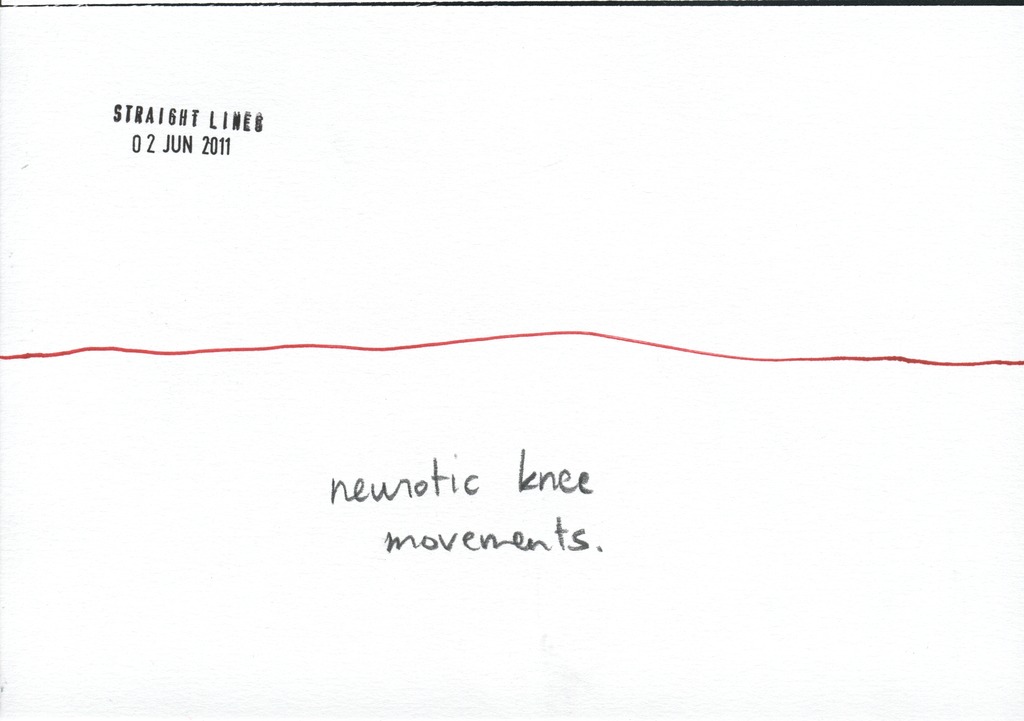 STRAIGHT LINES
02 JUN 2011
neurotic knee
movements.